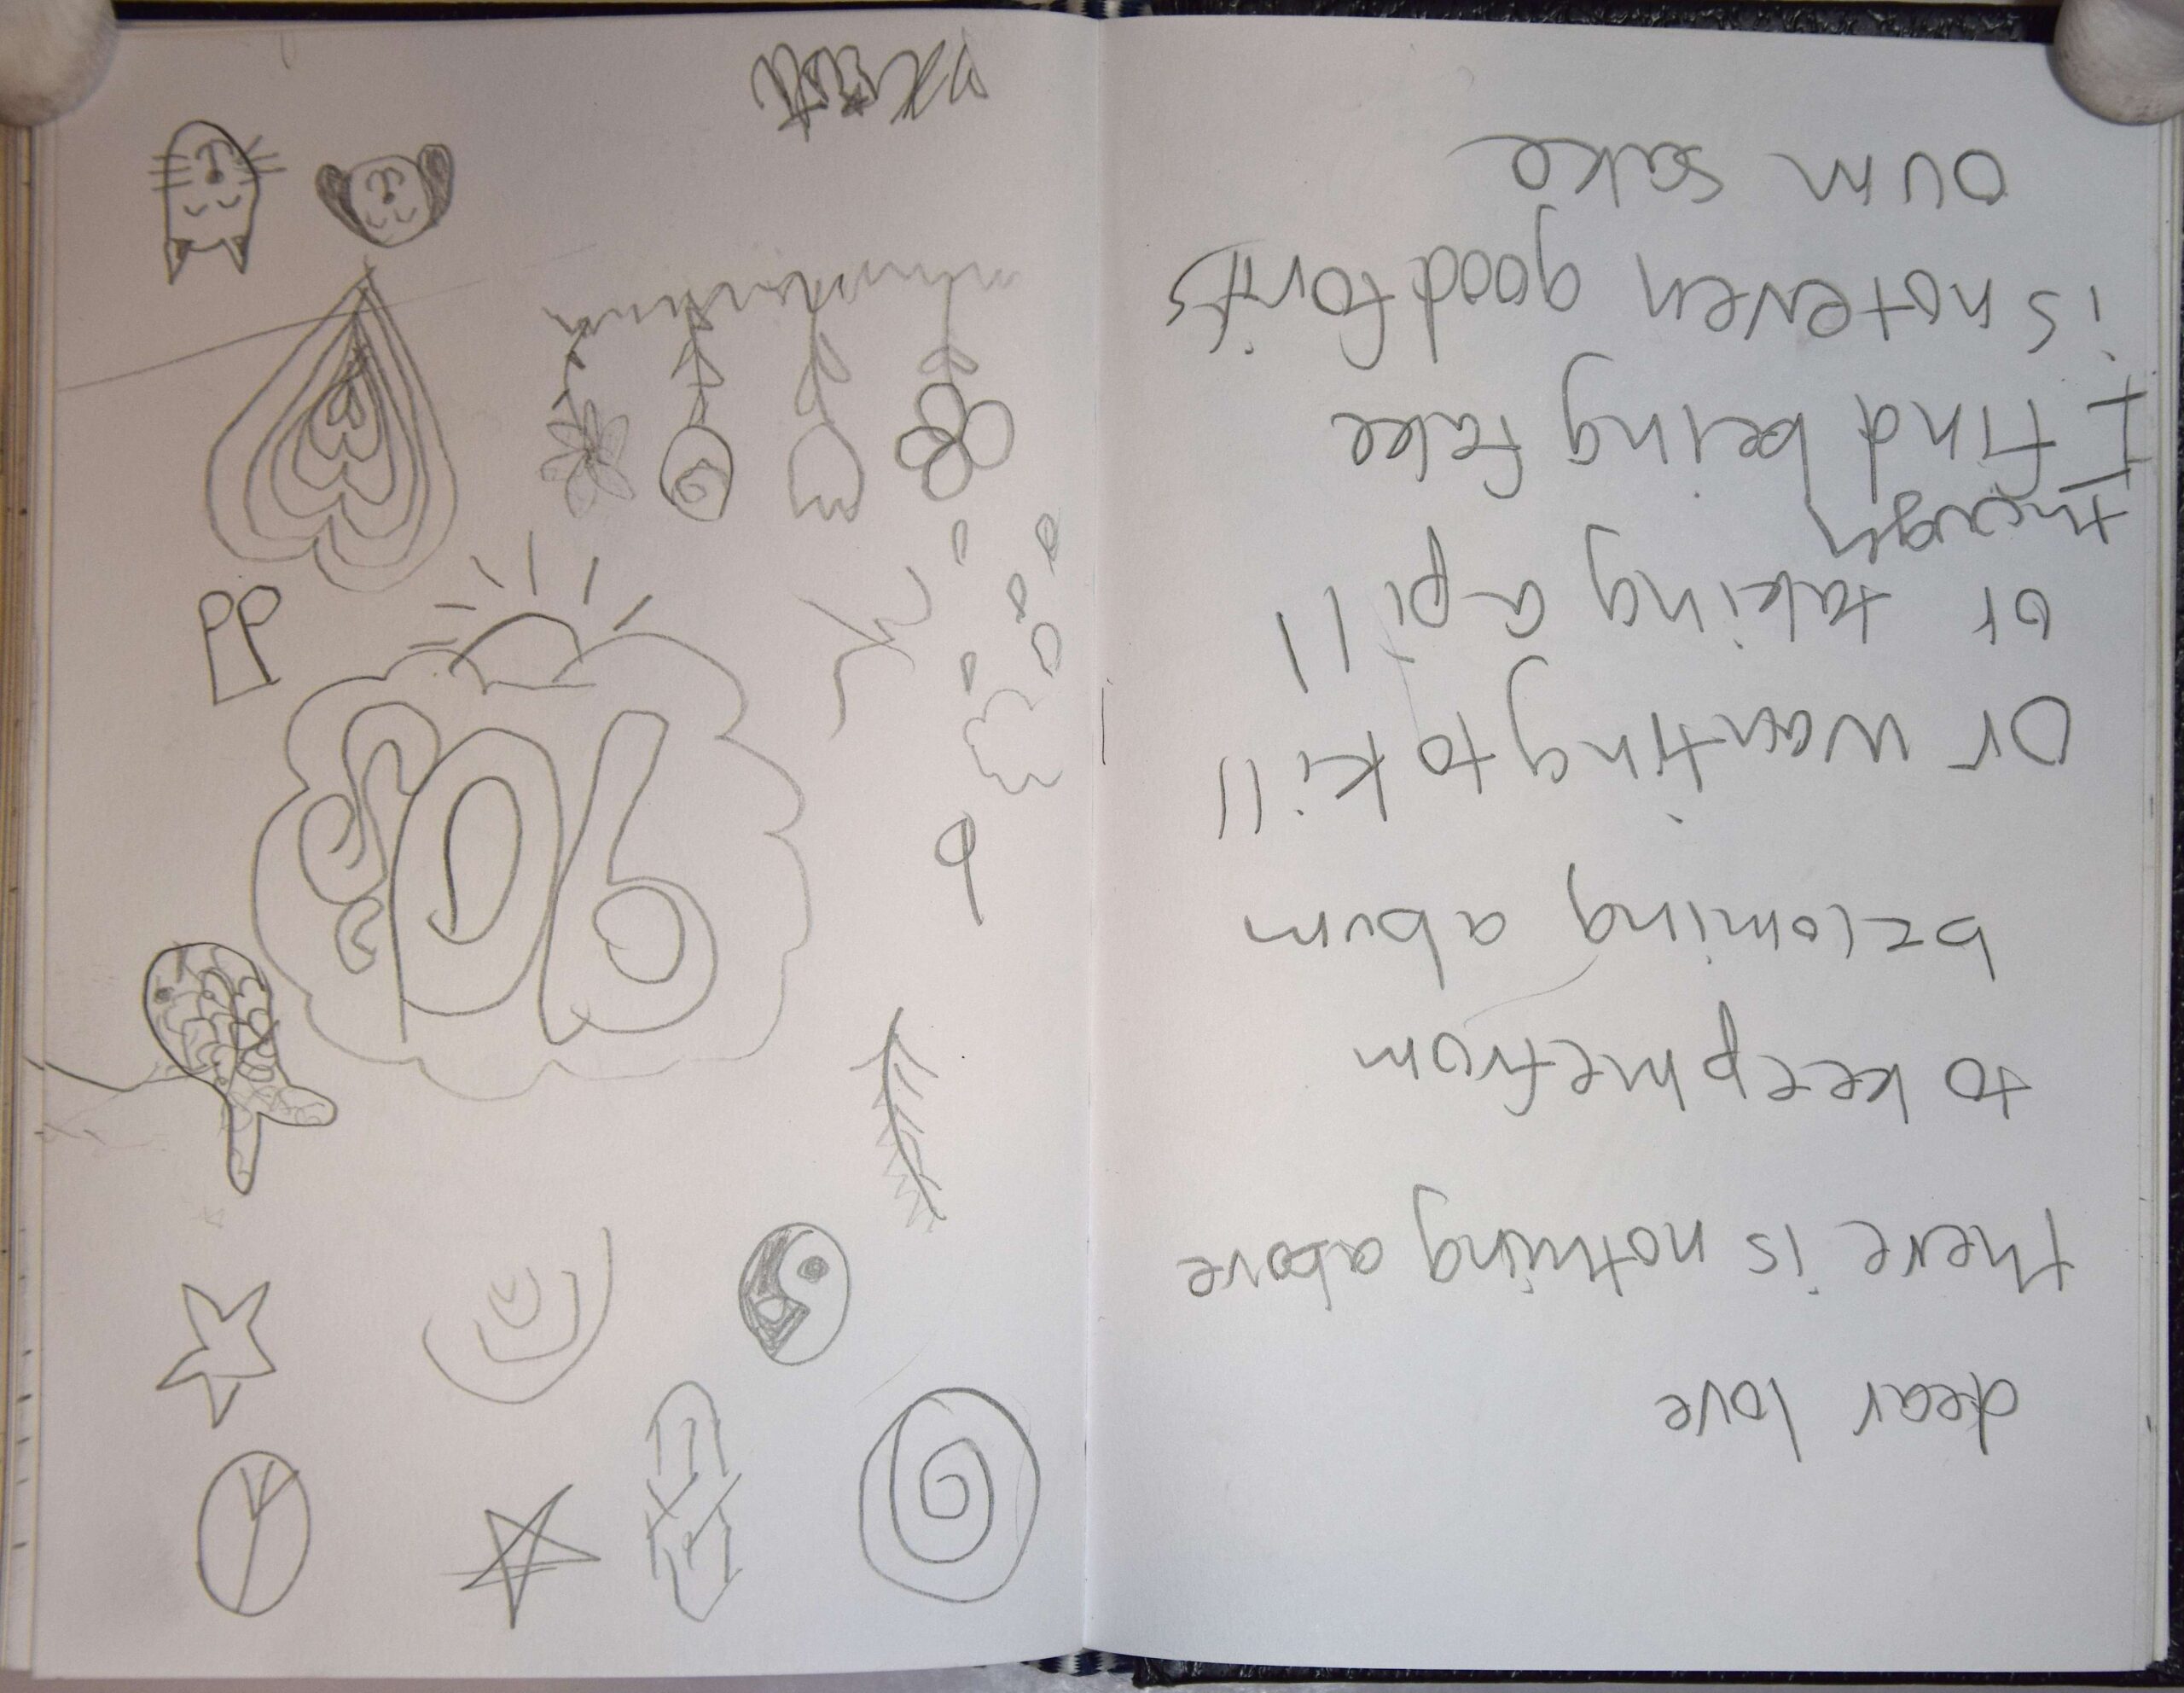 dear love
there is nothing above
to keep me from
becoming a bum
Or wanting to kill
or taking a pill
though
I find being fake
is not even good for it's
own sake
90's